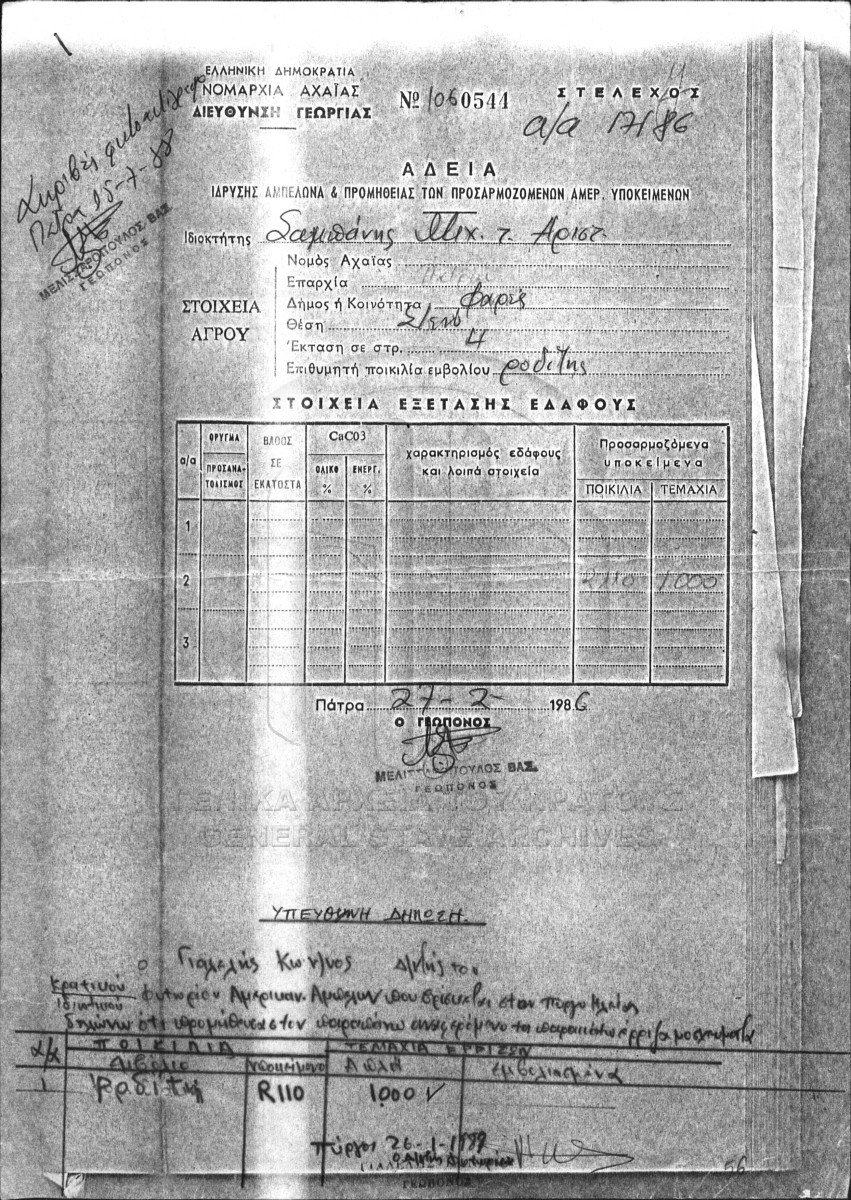 ΕΛΛΗΝΙΚΗ ΔΗΜΟΚΡΑΤΙΑ
ΝΟΜΑΡΧΙΑ ΑΧΑΪΑΣ
ΔΙΕΥΘΥΝΣΗ ΓΕΩΡΓΙΑΣ
Νº 060544
ΣΤΕΛΕΧΟΣ
α/α 17/86
Ακριβές φωτοαντίγραφο
Πάτρα 15-7-88
ΒΑΣ.
ΓΕΩΠΟΝΟΣ
ΑΔΕΙΑ
ΙΔΡΥΣΗΣ ΑΜΠΕΛΩΝΑ & ΠΡΟΜΗΘΕΙΑΣ ΤΩΝ ΠΡΟΣΑΡΜΟΖΟΜΕΝΩΝ ΑΜΕΡ. ΥΠΟΚΕΙΜΕΝΩΝ
Ιδιοκτήτης Σαμπάνης Μιχ. τ. Αριστ.
ΣΤΟΙΧΕΙΑ ΑΓΡΟΥ
Νομός Αχαΐας
Επαρχία
Δήμος ή Κοινότητα Φαρές
Θέση
Έκταση σε στρ. 4
Επιθυμητή ποικιλία εμβολίου ροδίτης
ΣΤΟΙΧΕΙΑ ΕΞΕΤΑΣΗΣ ΕΔΑΦΟΥΣ
α/α
ΟΡΥΓΜΑ
ΠΡΟΣΑΝΑ-
ΤΟΛΙΣΜΟΣ
ΒΑΘΟΣ
ΣΕ
ΕΚΑΤΟΣΤΑ
CaCO3
ΟΛΙΚΟ %
ΕΝΕΡΓ. %
χαρακτηρισμός εδάφους
και λοιπά στοιχεία
Προσαρμοζόμενα
υποκείμενα
ΠΟΙΚΙΛΙΑ ΤΕΜΑΧΙΑ
1
2 R110 1.000
3
Πάτρα 27-2- 1986
Ο ΓΕΩΠΟΝΟΣ
ΒΑΣ.
ΓΕΩΠΟΝΟΣ
ΓΕΝΙΚΑ ΑΡΧΕΙΑ ΤΟΥ ΚΡΑΤΟΥΣ
GENERAL STATE ARCHIVES
ΥΠΕΥΘΥΝΗ ΔΗΛΩΣΗ
ο Γιαλελής Κων/νος Δ/ντής του
κρατικού
ιδιωτικού φυτωρίου Αμερικαν. Αμπέλων που βρίσκεται στον Πύργο Ηλείας
δηλώνω ότι προμήθευσα στον παραπάνω αναφερόμενο τα παρακάτω έρριζα μοσχεύματα
α/α ΠΟΙΚΙΛΙΑ ΤΕΜΑΧΙΑ ΕΡΡΙΖΩΝ
Εμβόλιο Υποκείμενο Απλά εμβολιασμένα
1 Ροδίτη R110 1.000
Πύργος 26-1-1988
ΓΕΩΠΟΝΟΣ
56